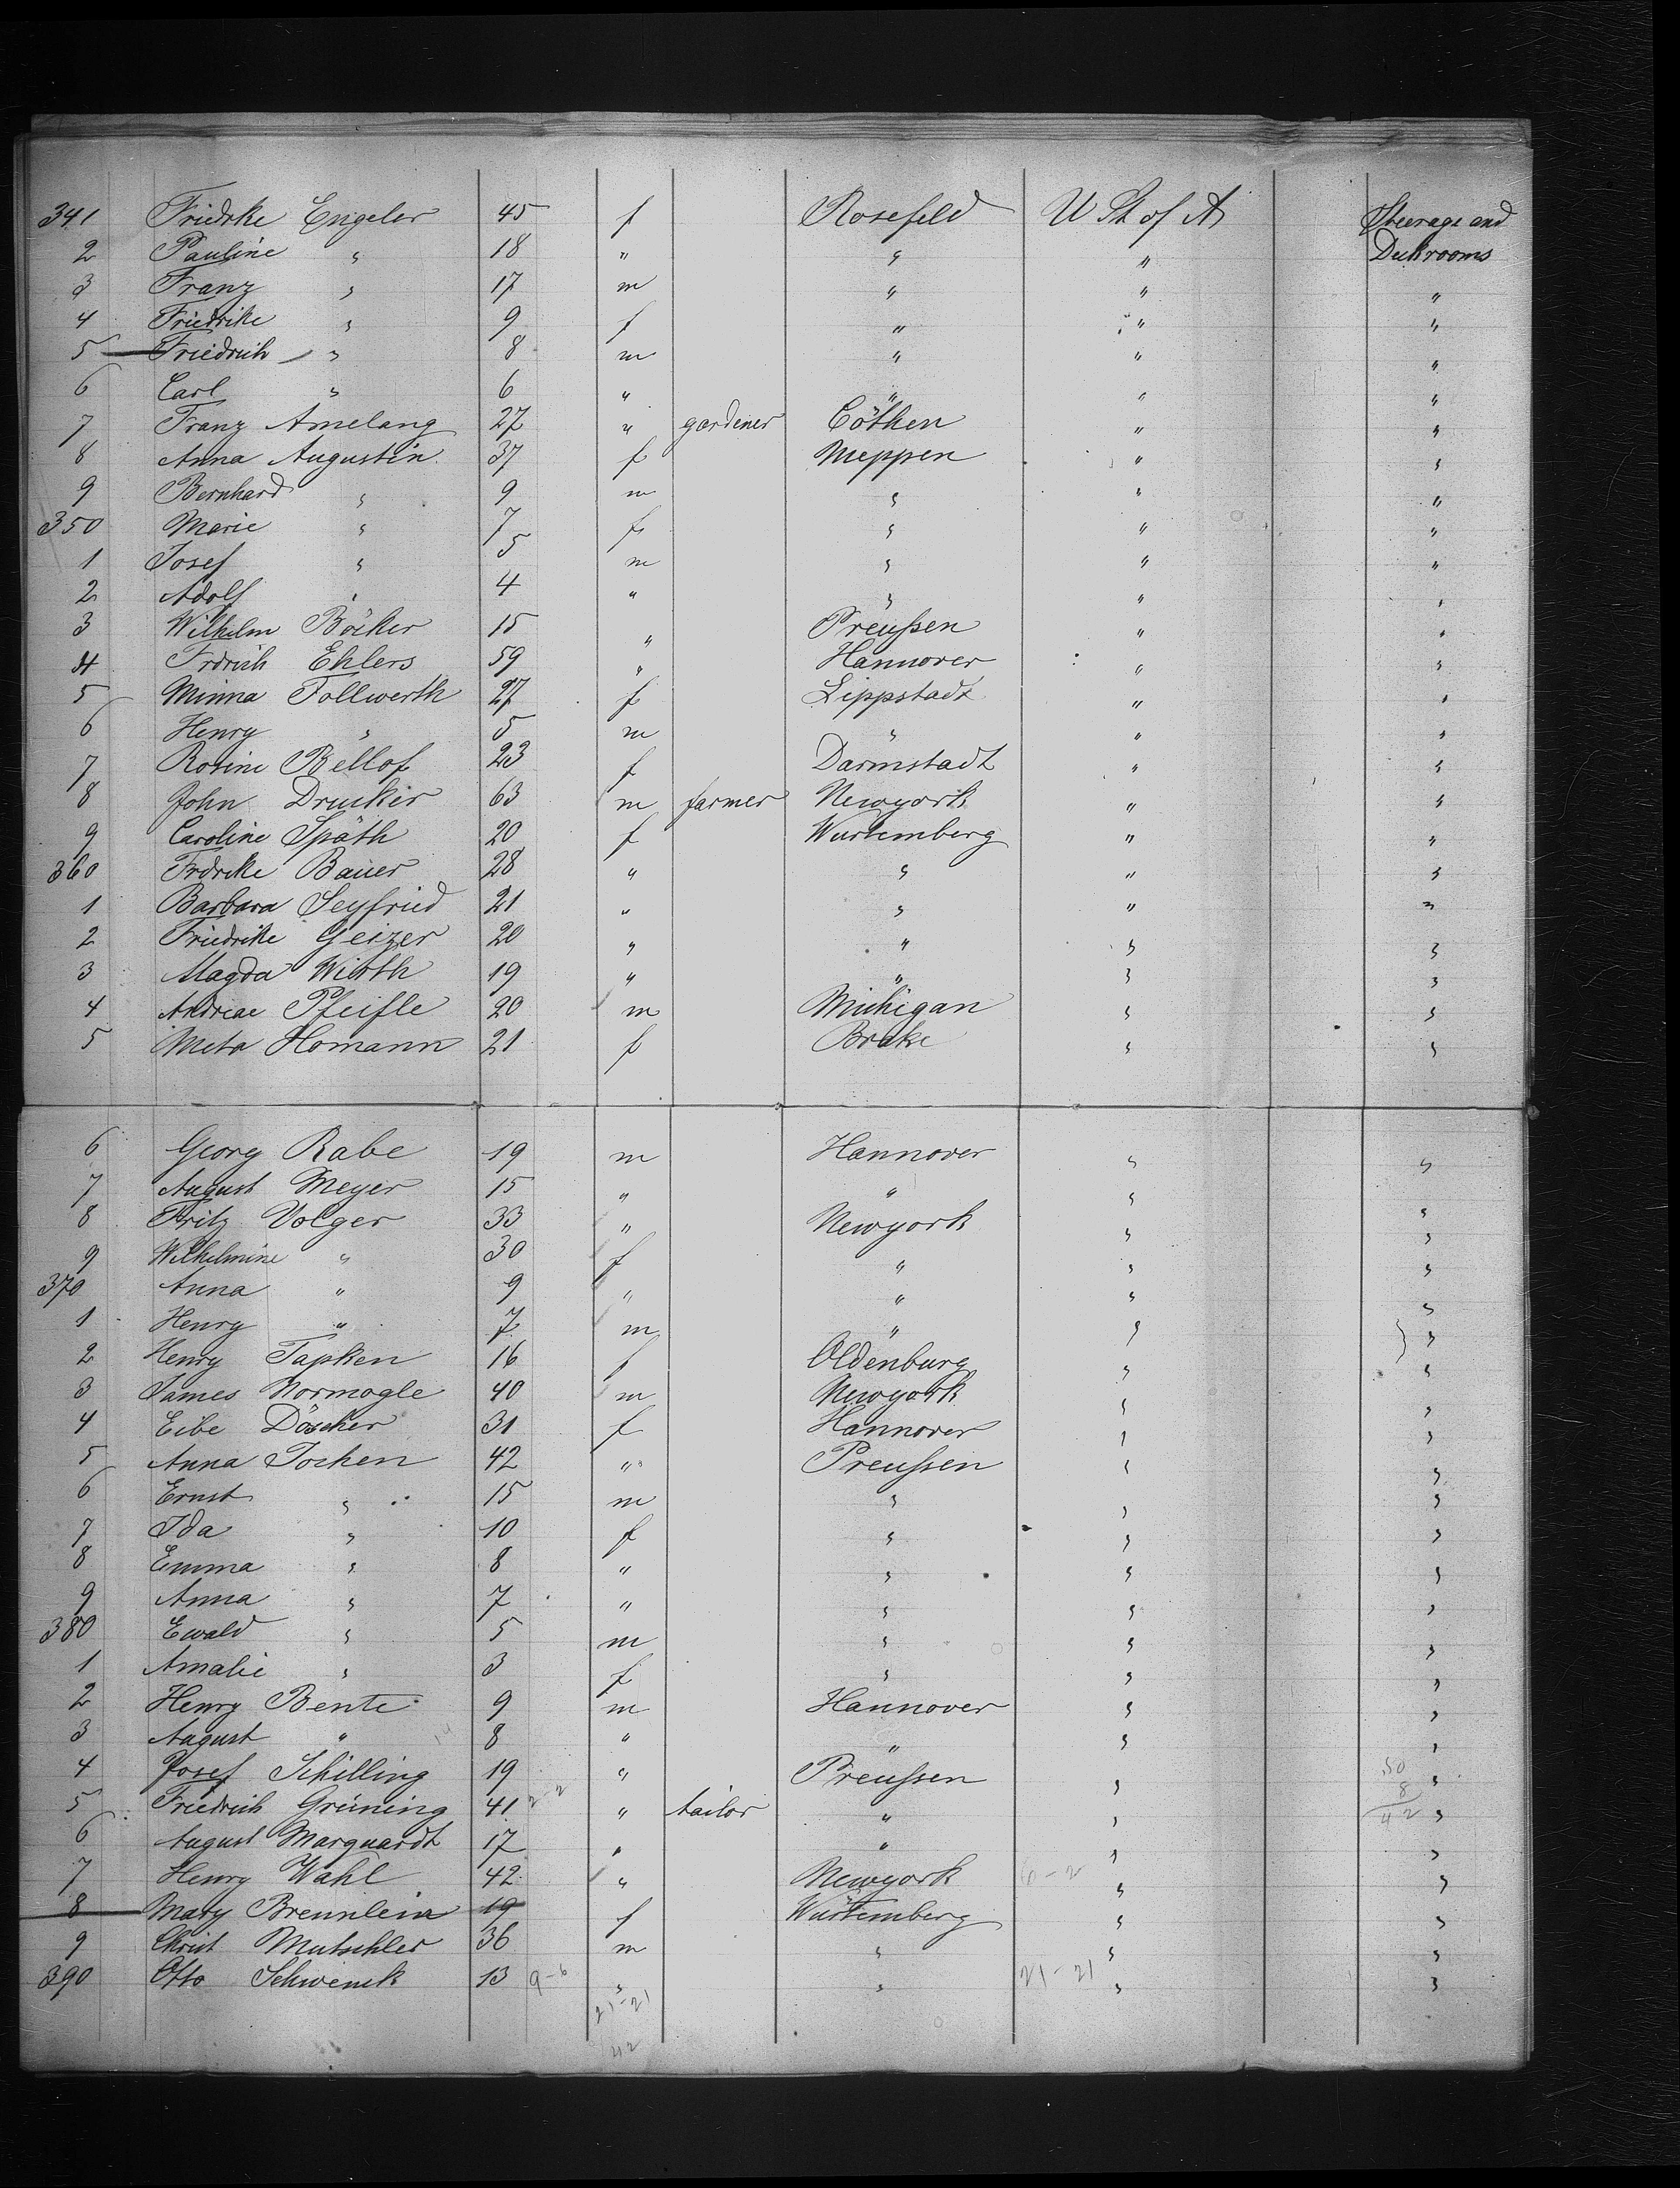 341 Fridrke Engeler 45 f Rosefeld U St of A Steerage and
2 Pauline " 18 " " " Deckrooms
3 Franz " 17 m " " "
4 Friedrike " 9 f " " "
5 Friedrich " 8 m " " "
6 Carl " 6 " " " "
7 Franz Amelang 27 " gardener Cöthen " "
8 Anna Augustin 37 f Meppen " "
9 Bernhard " 9 m " " "
350 Marie " 7 f " " "
1 Josef " 5 m " " "
2 Adolf " 4 " " " "
3 Wilhelm Böcker 15 " Preußen " "
4 Frdrich Ehlers 59 " Hannover " "
5 Minna Follwerth 27 f Lippstadt " "
6 Henry " 5 m " " "
7 Rosine Bellof 23 f Darmstadt " "
8 John Drucker 63 m farmer Newyork " "
9 Caroline Späth 20 f Wurtemberg " "
360 Frdrcke Bauer 28 " " " "
1 Barbara Seyfried 21 " " " "
2 Friedrike Geizer 20 " " " "
3 Magda Wirth 19 " " " "
4 Andreae Pfeifle 20 m Michigan " "
5 Meta Homann 21 f Brake " "
6 Georg Rabe 19 m Hannover " "
7 August Meyer 15 " " " "
8 Fritz Volger 33 " Newyork " "
9 Wilhelmine " 30 f " " "
370 Anna " 9 " " " "
1 Henry " 7 m " " "
2 Henry Tapken 16 f Oldenburg " "
3 James Normogle 40 m Newyork " "
4 Eibe Döscher 31 f Hannover " "
5 Anna Jochen 42 " Preußen " "
6 Ernst " 15 m " " "
7 Ida " 10 f " " "
8 Emma " 8 " " " "
9 Anna " 7 " " " "
380 Ewald " 5 m " " "
1 Amalie " 3 f " " "
2 Henry Bente 9 m Hannover " "
3 August " 8 " " " "
4 Josef Schilling 19 " Preußen " 50 "
8
5 Friedrich Grüning 41 2-2 " tailor " " 42 "
6 August Marquardt 17 " " " "
7 Henry Wahl 42 " Newyork " "
8 Mary Brennlein 19 f Würtemberg " "
9 Christ Mutschler 36 m " " "
390 Otto Schwenck 13 9-6 " " 21-21 " "
21-21
42